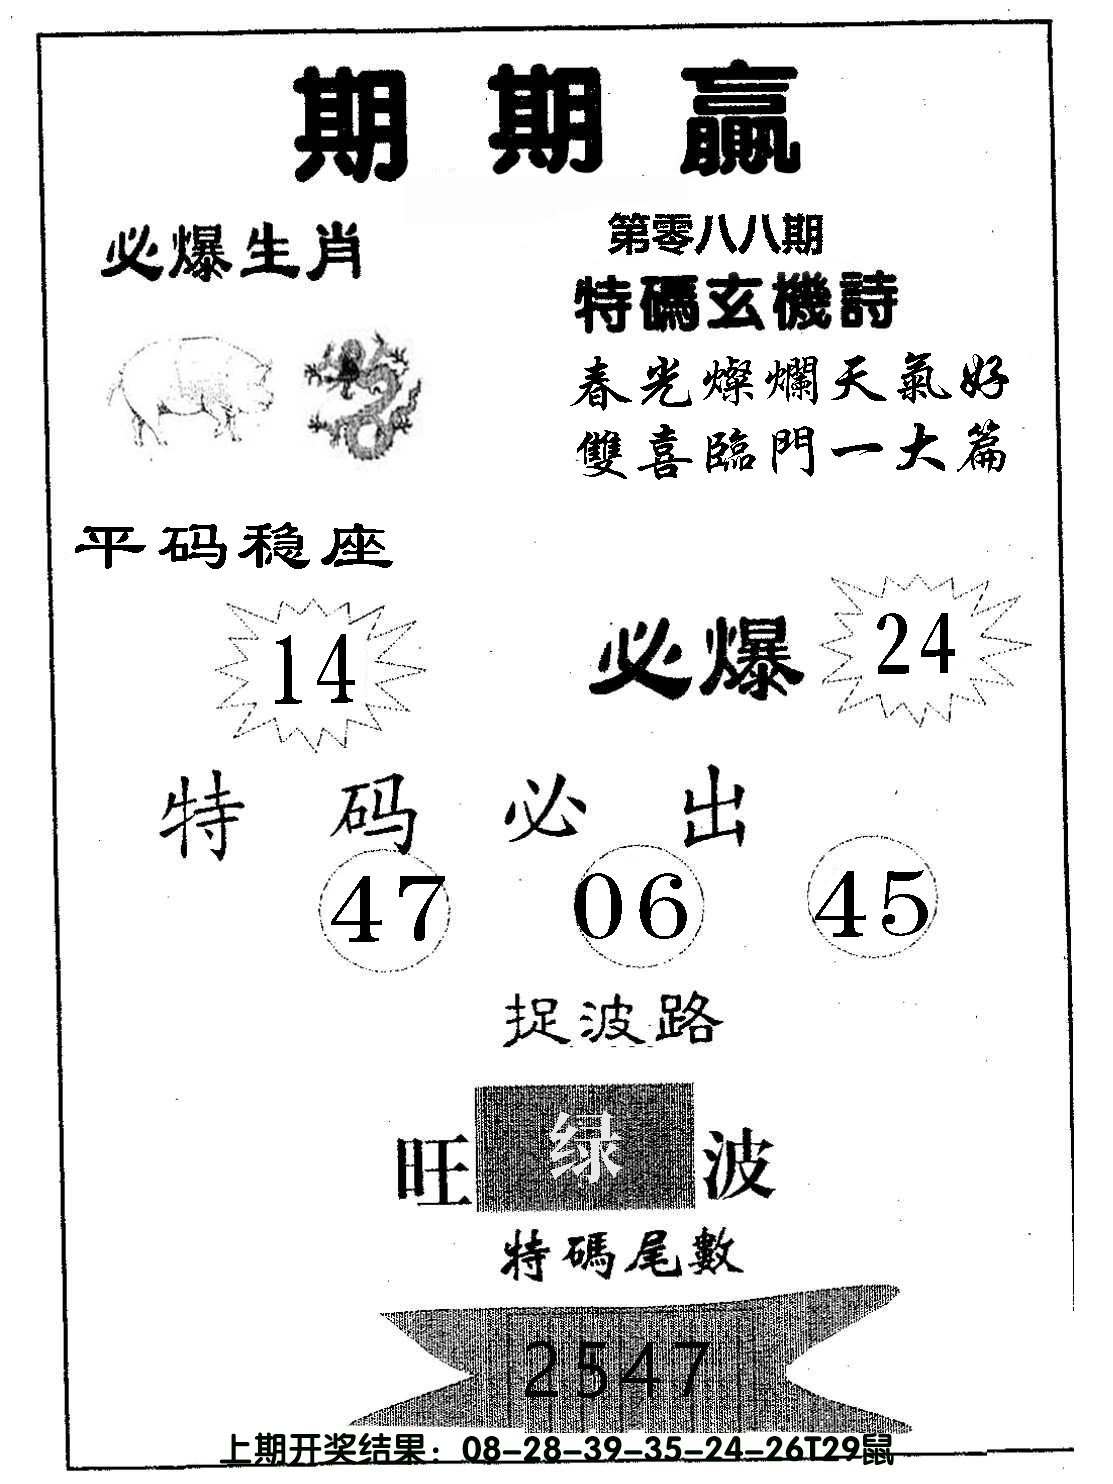 期期贏
必爆生肖
第零八八期
特碼玄機詩
春光燦爛天氣好
雙喜臨門一大篇
平码稳座
14
必爆 24
特码必出
47 06 45
捉波路
旺 绿 波
特碼尾數
2547
上期开奖结果：08-28-39-35-24-26T29鼠